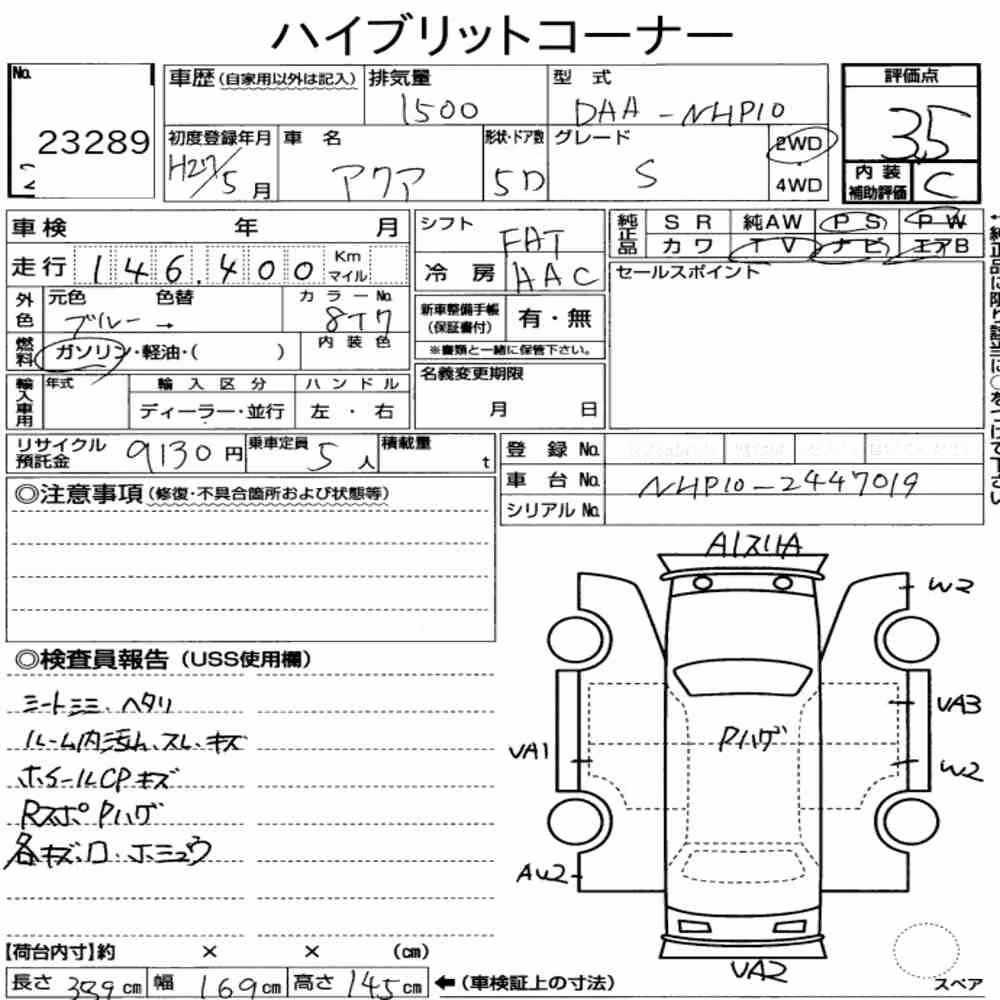 ハイブリットコーナー
No. 23289
車歴(自家用以外は記入)
排気量 1500
型式 DAA-NHP10
評価点 3.5
初度登録年月 H27/5月
車名 アクア
形状・ドア数 5D
グレード S
2WD
4WD
内装補助評価 C
車検 年 月
シフト FAT
純正品 SR 純AW PS PW
カワ TV ナビ エアB
走行 146,400 Km マイル
冷房 AAC
セールスポイント
外色 元色 ブルー → 色替 カラーNo. 8T7
新車整備手帳(保証書付) 有・無
※書類と一緒に保管下さい。
燃料 ガソリン・軽油・( )
内装色
輸入車用 年式 輸入区分 ハンドル
ディーラー・並行 左・右
名義変更期限
月 日
リサイクル預託金 9130円
乗車定員 5人
積載量 t
登録No.
車台No. NHP10-2447019
シリアルNo.
◎注意事項(修復・不具合箇所および状態等)
◎検査員報告(USS使用欄)
シートシミ、ヘタリ
ルーム内汚れ、スレ、キズ
ホイールCPキズ
RスポPハゲ
各キズ、
A1スリA
W2
VA3
Pハゲ
VA1
W2
AW2
VA2
【荷台内寸】約 × × (cm)
長さ 399cm 幅 169cm 高さ 145cm ←(車検証上の寸法)
スペア